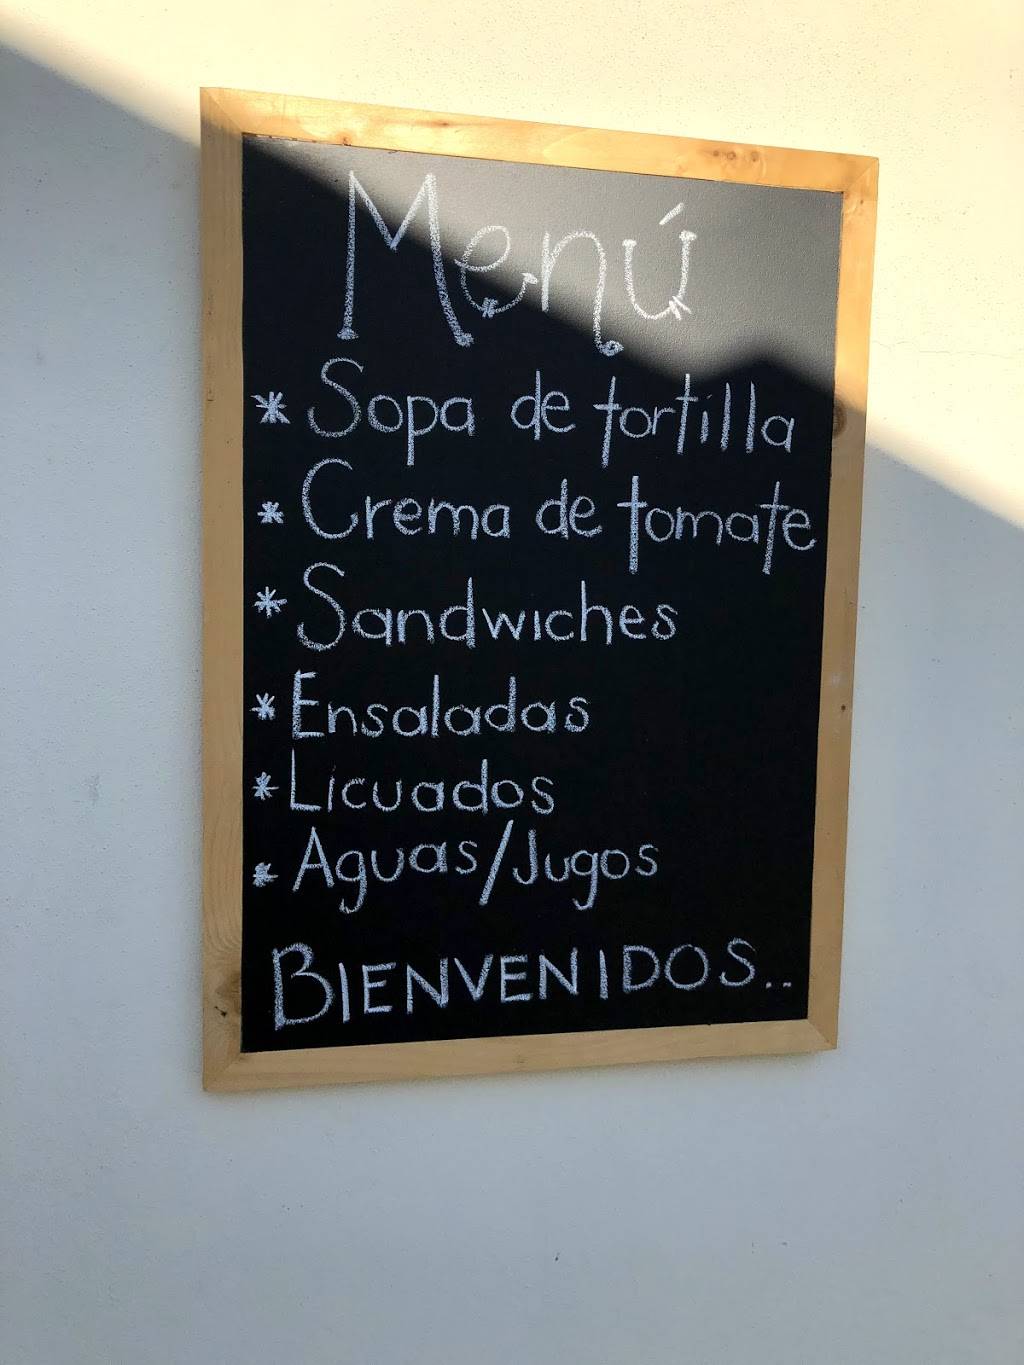 Menú
* Sopa de tortilla
* Crema de tomate
* Sandwiches
* Ensaladas
* Licuados
* Aguas/Jugos
BIENVENIDOS..